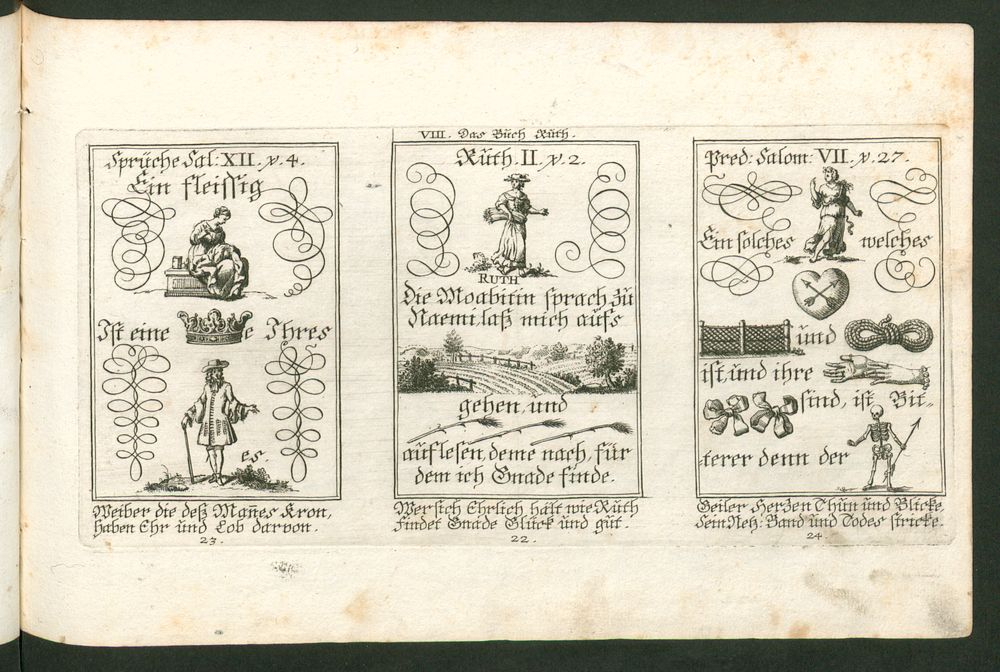 VIII. Das Buch Ruth.
Sprüche Sal: XII. v. 4.
Ein fleissig
Ist eine
e Ihres
es.
Weiber die deß Mañes Kron,
haben Ehr und Lob darvon.
23.
Ruth. II. v. 2.
RUTH
Die Moabitin sprach zu
Naemi, laß mich aufs
gehen, und
auflesen, deme nach, für
dem ich Gnade finde.
Wer sich Ehrlich hält wie Ruth
Findet Gnade Glück und gut.
22.
Pred: Salom: VII. v. 27.
Ein solches welches
und
ist, und ihre
sind, ist Bit-
terer denn der
Geiler Herzen Thun und Blicke,
Sein Netz: Band und Todes stricke.
24